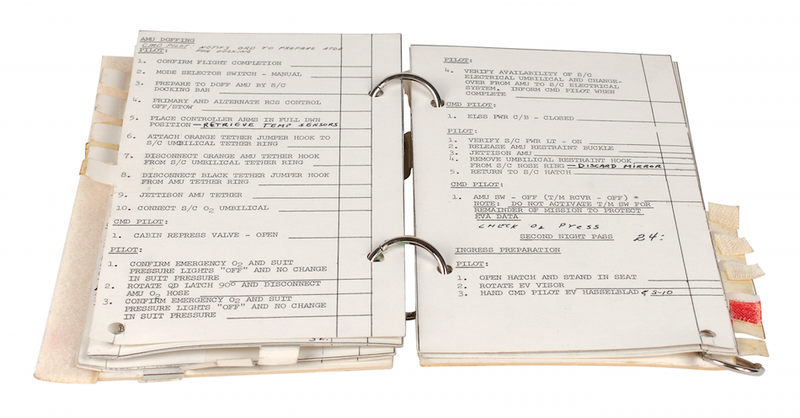 AMU DOFFING
CMD PILOT - NOTIFY GRD TO PREPARE ATDA
FOR DOCKING
PILOT:
1. CONFIRM FLIGHT COMPLETION
2. MODE SELECTOR SWITCH - MANUAL
3. PREPARE TO DOFF AMU BY S/C
DOCKING BAR
4. PRIMARY AND ALTERNATE RCS CONTROL
OFF/STOW
5. PLACE CONTROLLER ARMS IN FULL DWN
POSITION - RETRIEVE TEMP SENSORS
6. ATTACH ORANGE TETHER JUMPER HOOK TO
S/C UMBILICAL TETHER RING
7. DISCONNECT ORANGE AMU TETHER HOOK
FROM S/C UMBILICAL TETHER RING
8. DISCONNECT BLACK TETHER JUMPER HOOK
FROM AMU TETHER RING
9. JETTISON AMU TETHER
10. CONNECT S/C O2 UMBILICAL
CMD PILOT:
1. CABIN REPRESS VALVE - OPEN
PILOT:
1. CONFIRM EMERGENCY O2 AND SUIT
PRESSURE LIGHTS "OFF" AND NO CHANGE
IN SUIT PRESSURE
2. ROTATE QD LATCH 90° AND DISCONNECT
AMU O2 HOSE
3. CONFIRM EMERGENCY O2 AND SUIT
PRESSURE LIGHTS "OFF" AND NO CHANGE
IN SUIT PRESSURE
PILOT:
4. VERIFY AVAILABILITY OF S/C
ELECTRICAL UMBILICAL AND CHANGE-
OVER FROM AMU TO S/C ELECTRICAL
SYSTEM. INFORM CMD PILOT WHEN
COMPLETE
CMD PILOT:
1. ELSS PWR C/B - CLOSED
PILOT:
1. VERIFY S/C PWR LT - ON
2. RELEASE AMU RESTRAINT BUCKLE
3. JETTISON AMU
4. REMOVE UMBILICAL RESTRAINT HOOK
FROM S/C HOSE RING - DISCARD MIRROR
5. RETURN TO S/C HATCH
CMD PILOT:
1. AMU SW - OFF (T/M RCVR - OFF) *
NOTE: DO NOT ACTIVATE T/M SW FOR
REMAINDER OF MISSION TO PROTECT
EVA DATA
CHECK O2 PRESS
SECOND NIGHT PASS 24:
INGRESS PREPARATION
PILOT:
1. OPEN HATCH AND STAND IN SEAT
2. ROTATE EV VISOR
3. HAND CMD PILOT EV HASSELBLAD & S-10